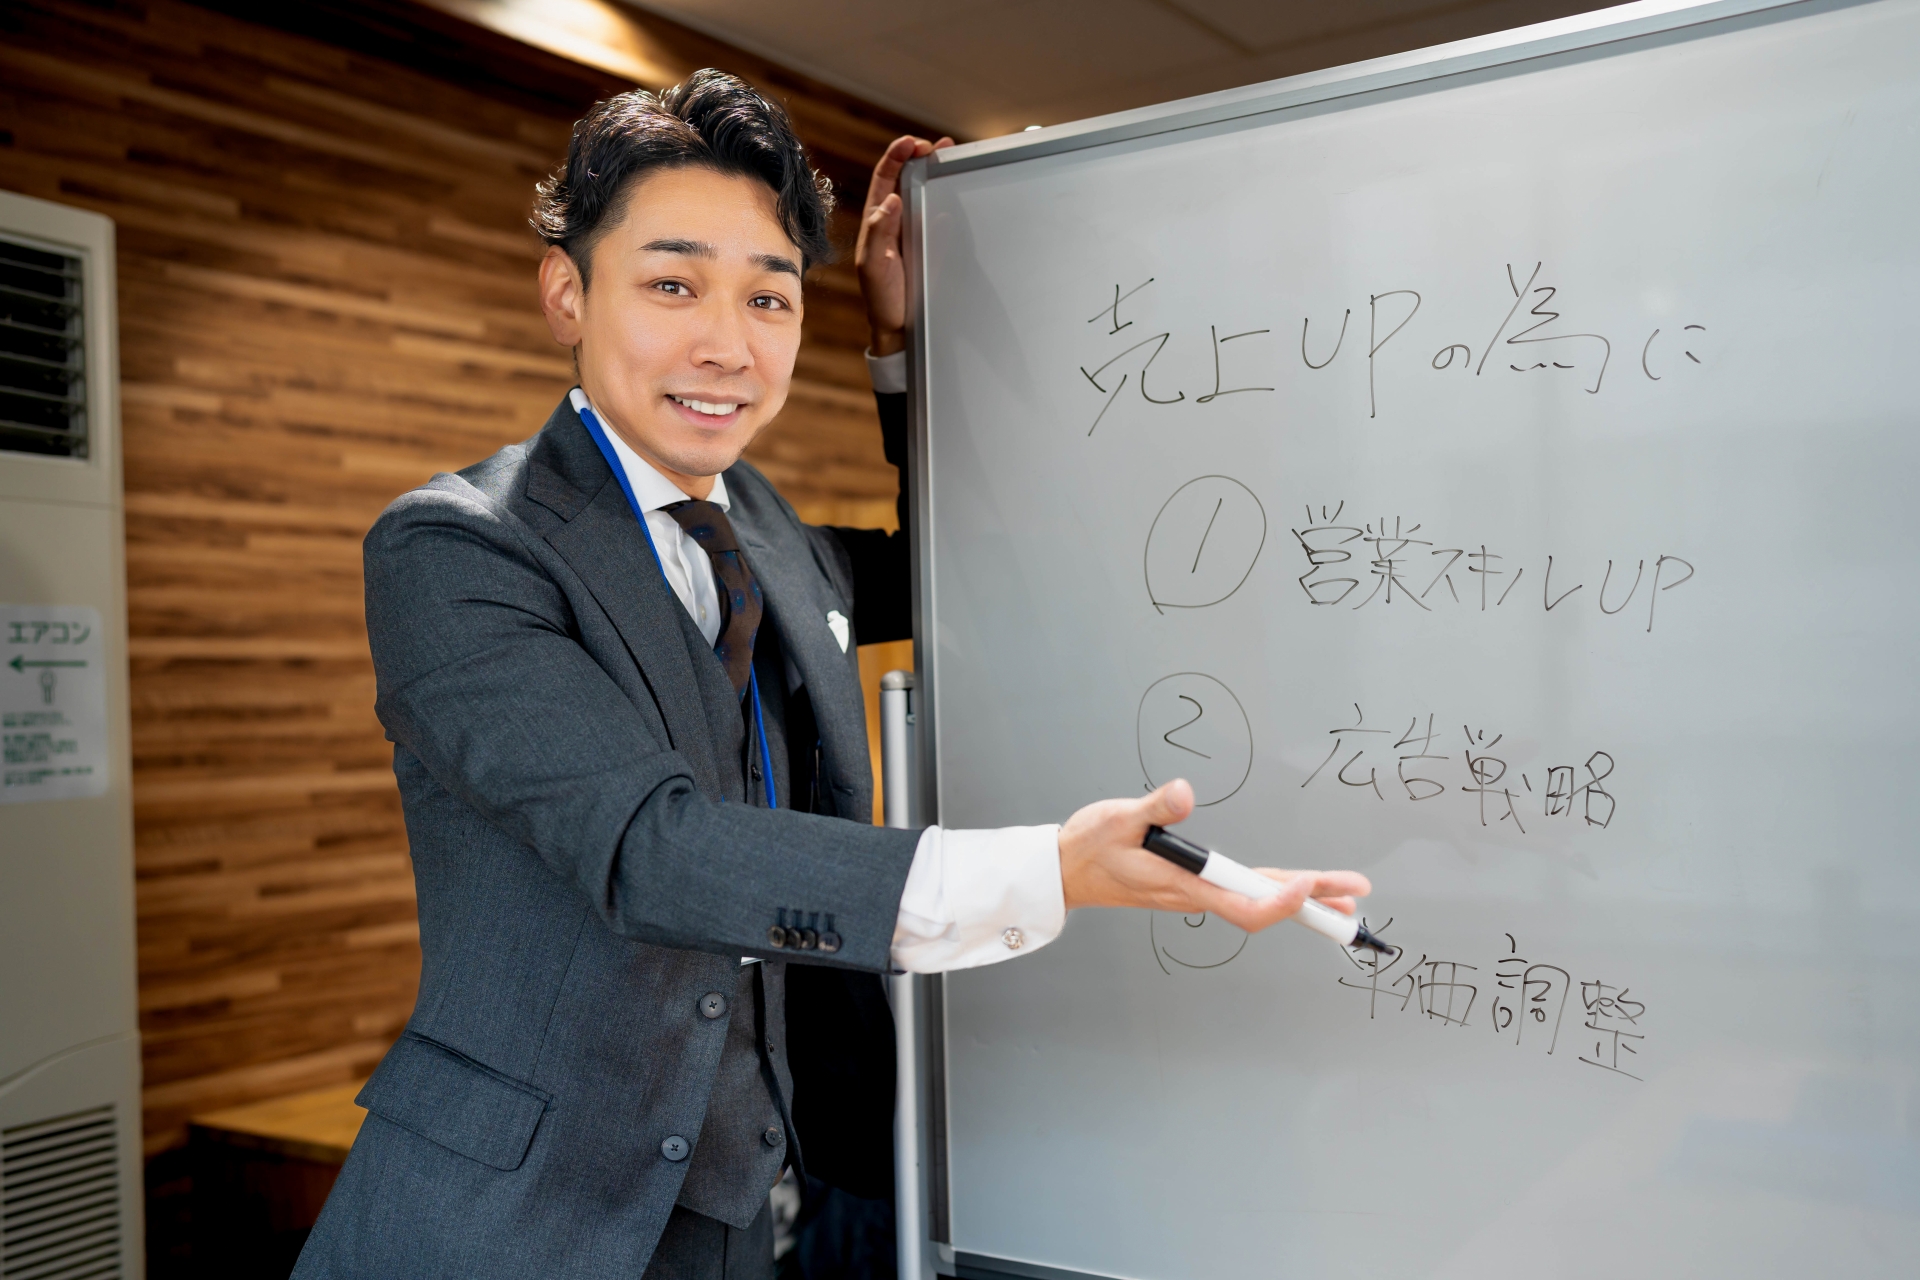 エアコン
売上UPの為に
① 営業スキルUP
② 広告戦略
単価調整